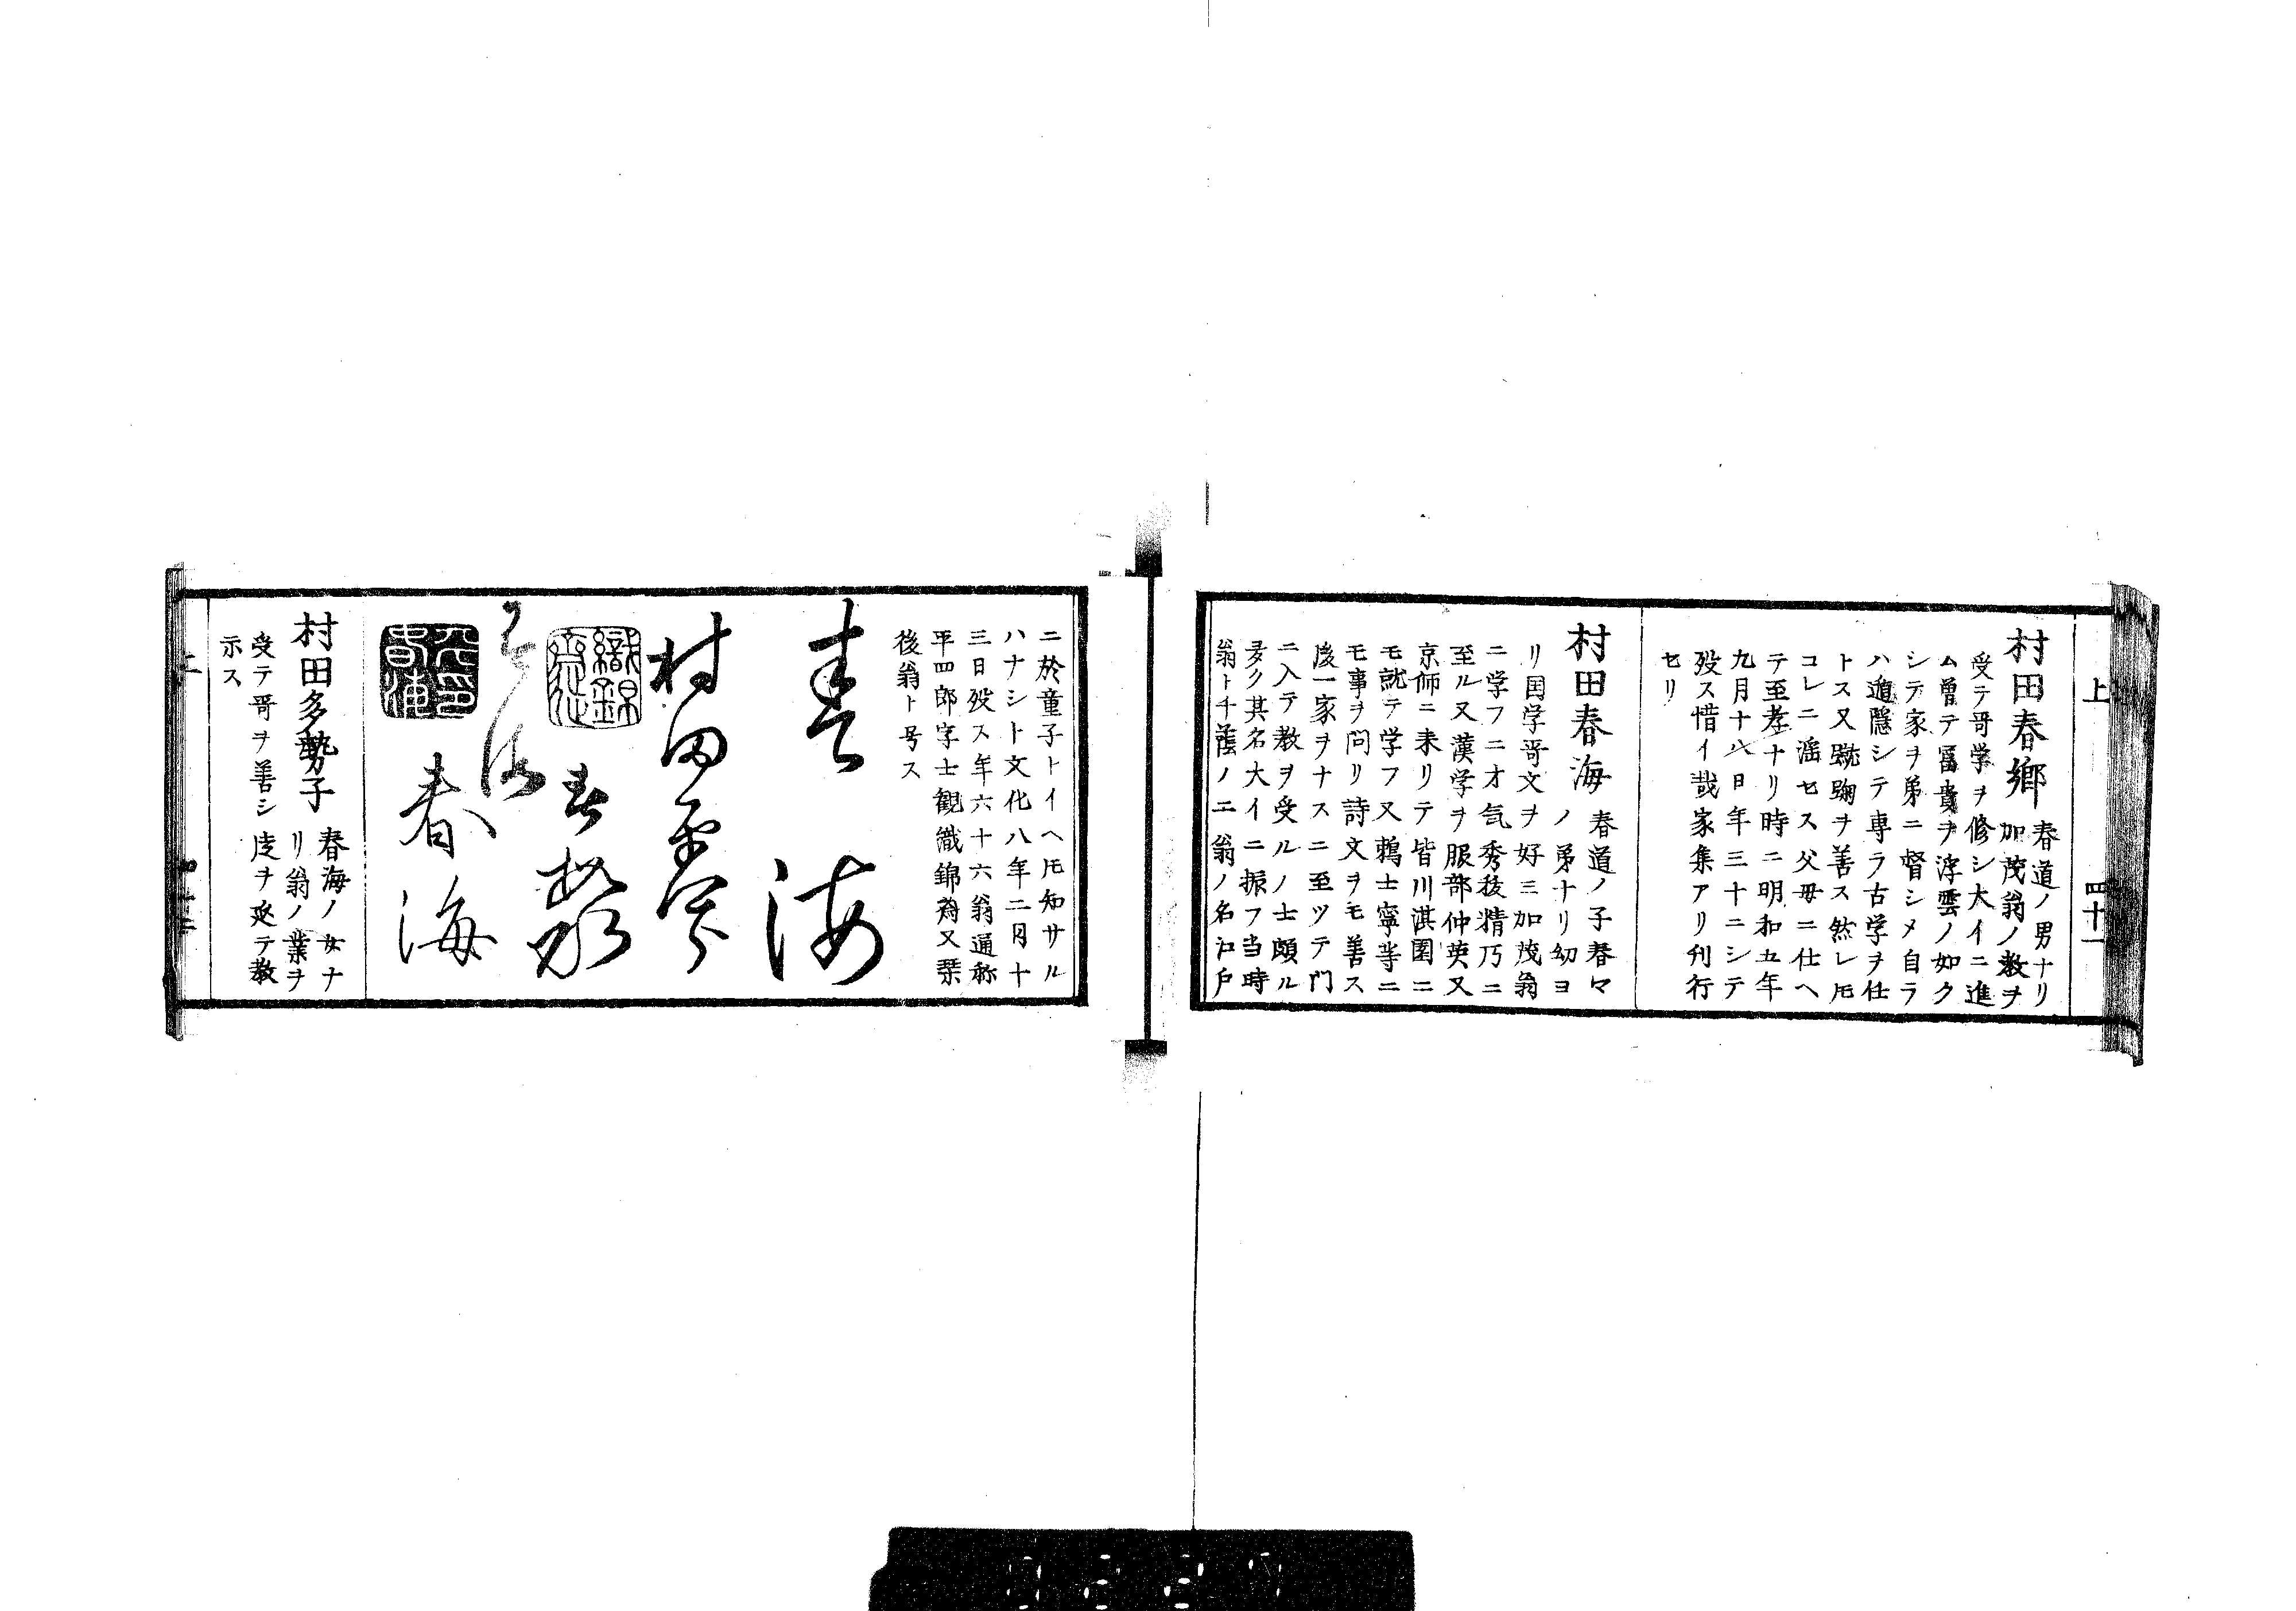 上
四十一
村田春郷
春道ノ男ナリ
加茂翁ノ教ヲ
受テ哥学ヲ修シ大イニ進
ム曽テ冨貴ヲ浮雲ノ如ク
シテ家ヲ弟ニ督シメ自ラ
ハ遁隠シテ専ラ古学ヲ仕
トス又蹴鞠ヲ善ス然レ𪜈
コレニ滛セス父母ニ仕ヘ
テ至孝ナリ時ニ明和五年
九月十八日年三十ニシテ
歿ス惜イ哉家集アリ刊行
セリ
村田春海
春道ノ子春々
ノ弟ナリ幼ヨ
リ国学哥文ヲ好ミ加茂翁
ニ学フニ才気秀抜精乃ニ
至ル又漢学ヲ服部仲英又
京師ニ来リテ皆川淇園ニ
モ就テ学フ又鵜士寧等ニ
モ事ヲ問リ詩文ヲモ善ス
後一家ヲナスニ至ツテ門
ニ入テ教ヲ受ルノ士頗ル
多ク其名大イニ振フ当時
翁ト千蔭ノ二翁ノ名江戸
ニ於童子トイヘ𪜈知サル
ハナシト文化八年二月十
三日歿ス年六十六翁通称
平四郎字士観織錦斎又琹
後翁ト号ス
春海
村田平
織錦斎
春海
春海
村田多勢子
春海ノ女ナ
リ翁ノ業ヲ
受テ哥ヲ善シ
徒ヲ延テ教
示ス
上